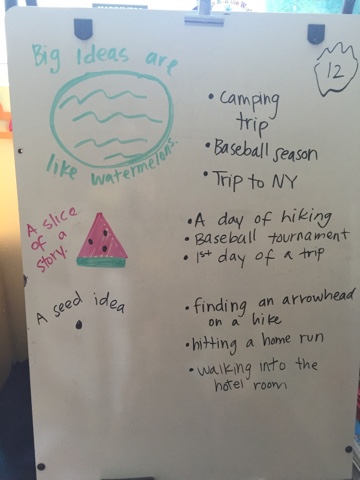 Big Ideas are
like watermelons.
12
• Camping
trip
• Baseball season
• Trip to NY
A slice
of a
story.
• A day of hiking
• Baseball tournament
• 1st day of a trip
A seed idea
• finding an arrowhead
on a hike
• hitting a home run
• walking into the
hotel room